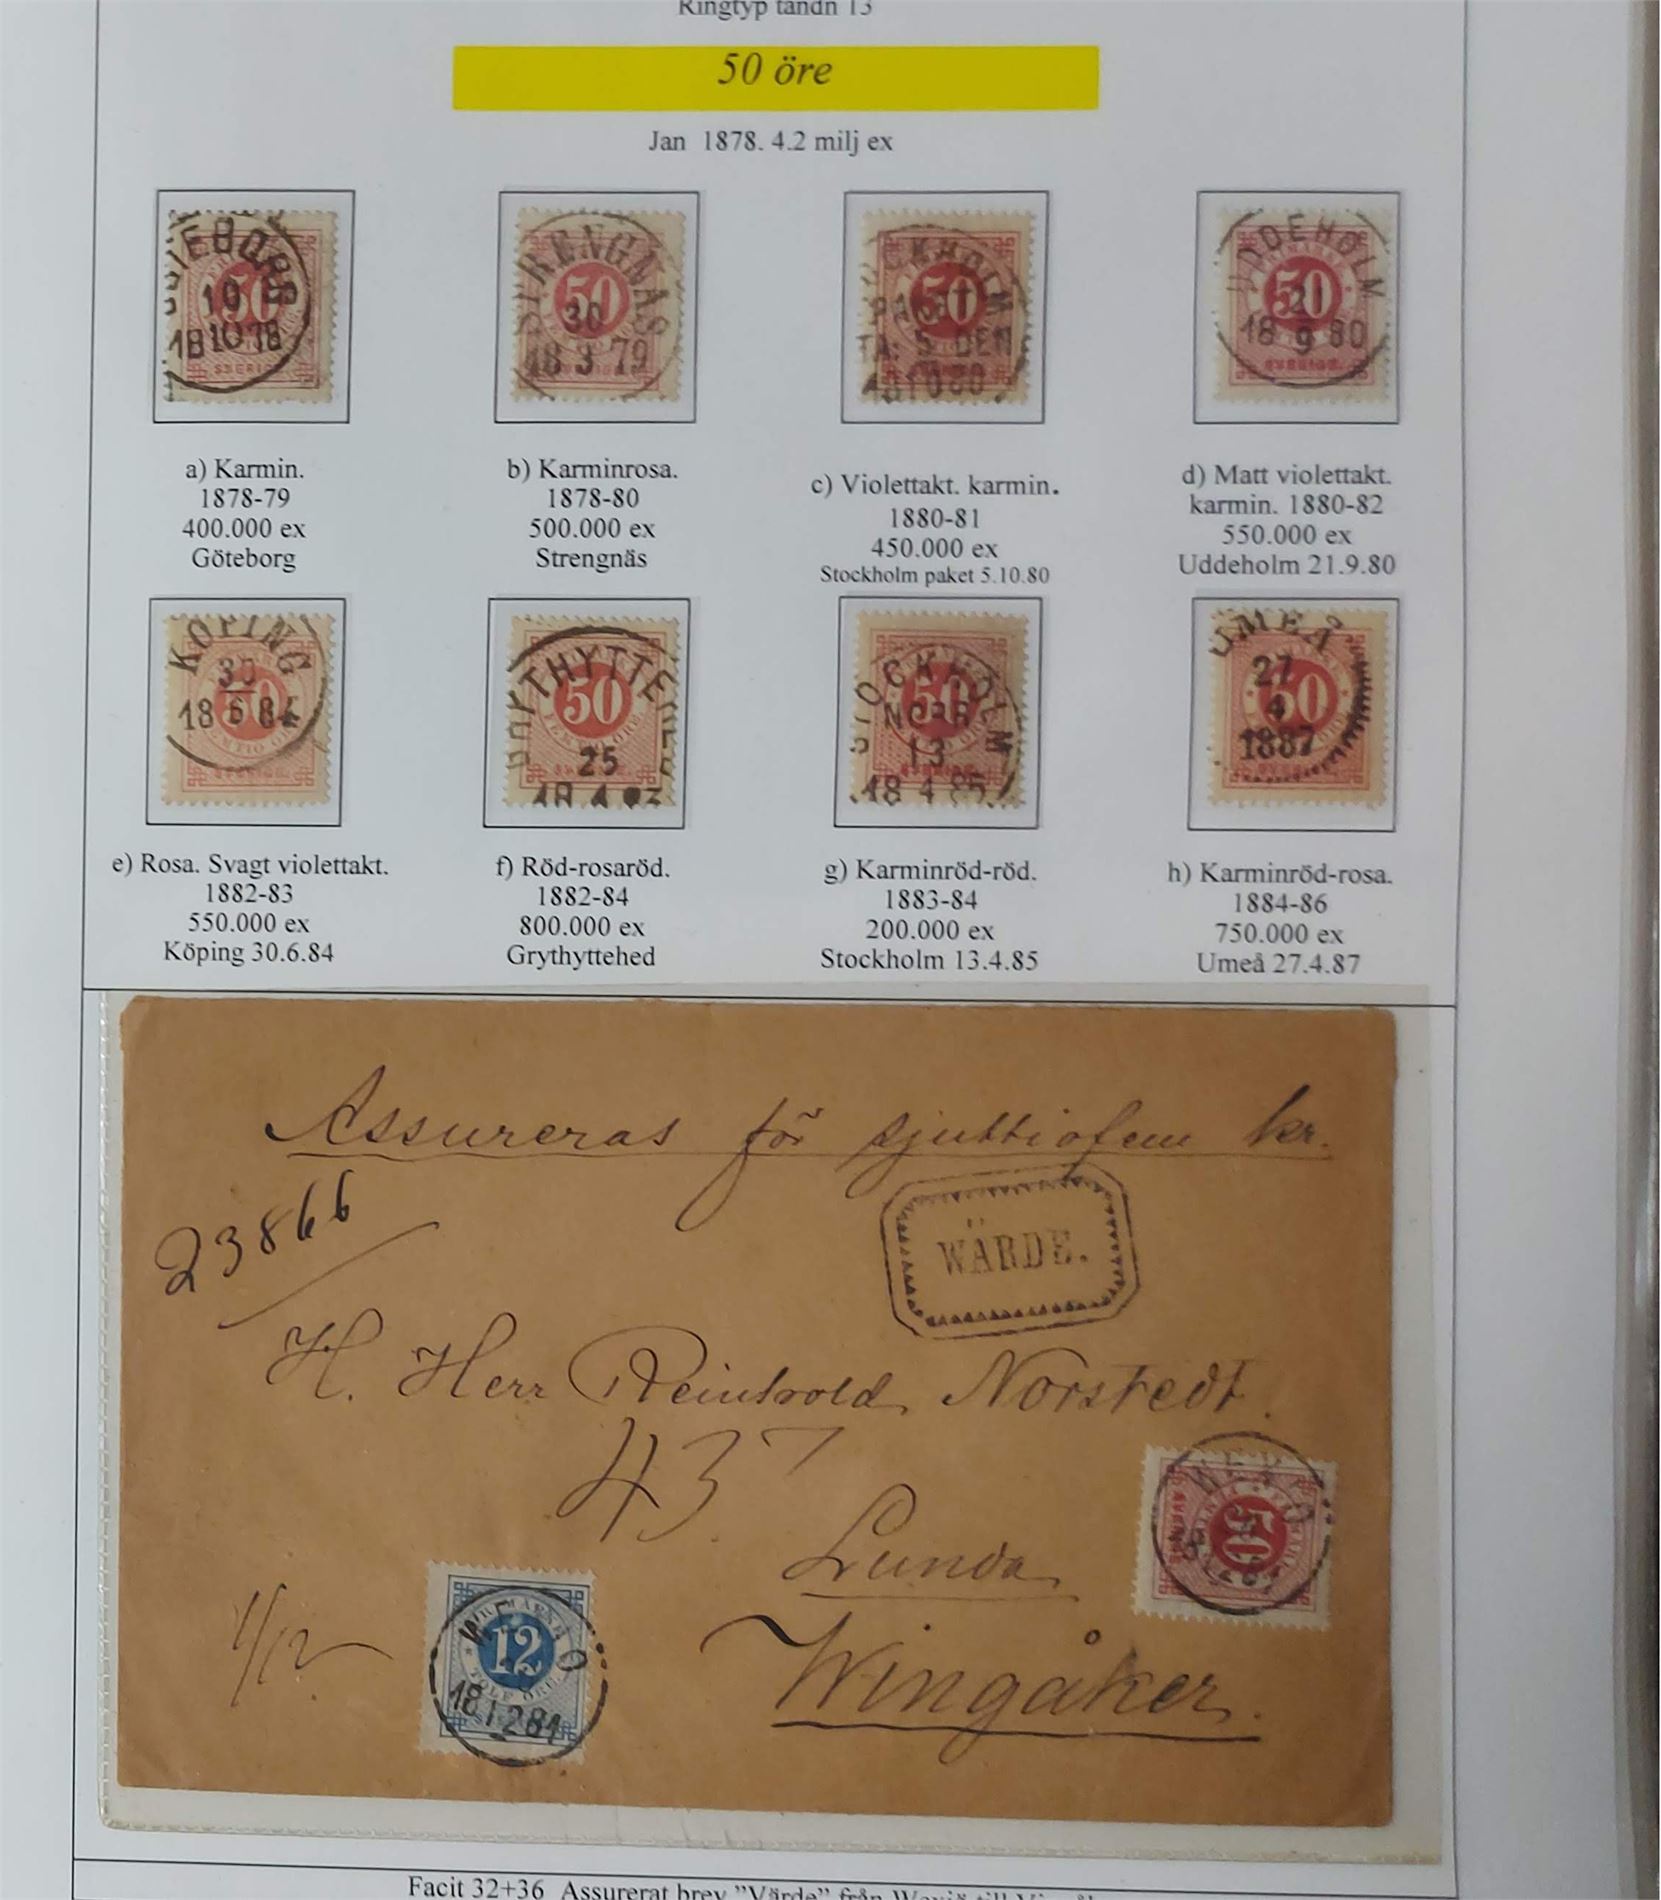 Ringtyp tandn 13
50 öre
Jan 1878. 4.2 milj ex
50
10
18 10 78
STRENGNÄS
50
30
18 3 79
STOCKHOLM
50
PAKET
5 DEN
UDDEHOLM
50
21
18 9 80
a) Karmin.
1878-79
400.000 ex
Göteborg
b) Karminrosa.
1878-80
500.000 ex
Strengnäs
c) Violettakt. karmin.
1880-81
450.000 ex
Stockholm paket 5.10.80
d) Matt violettakt.
karmin. 1880-82
550.000 ex
Uddeholm 21.9.80
KÖPING
30
18 6 84
50
25
STOCKHOLM
50
NORR
13
18 4 85
UMEÅ
27
50
4
1887
e) Rosa. Svagt violettakt.
1882-83
550.000 ex
Köping 30.6.84
f) Röd-rosaröd.
1882-84
800.000 ex
Grythyttehed
g) Karminröd-röd.
1883-84
200.000 ex
Stockholm 13.4.85
h) Karminröd-rosa.
1884-86
750.000 ex
Umeå 27.4.87
Assureras för sjuttiofem kr.
23866
WÄRDE.
H. Herr Reinhold Norstedt.
437
WEXIÖ
50
Lunda
1/12
12
TOLF ÖRE
18 1 2 84
Wingåker.
Facit 32+36 Assurerat brev "Värde" från